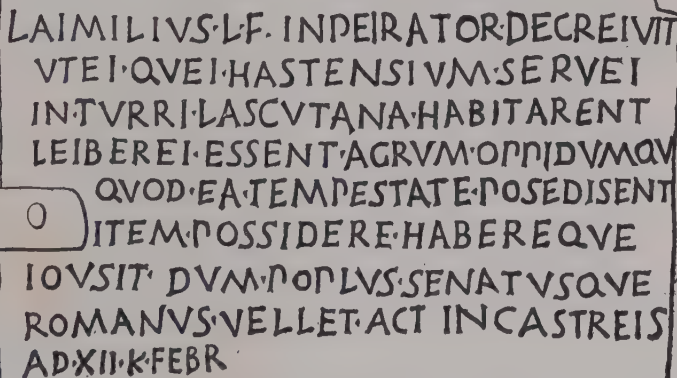 LAIMILIVS·L·F· INPEIRATOR·DECREIVIT
VTEI·QVEI·HASTENSIVM·SERVEI
IN·TVRRI·LASCVTANA·HABITARENT
LEIBEREI·ESSENT·AGRVM·OPPIDVMQV
QVOD·EA·TEMPESTATE·POSEDISENT
ITEM·POSSIDERE·HABEREQVE
IOVSIT· DVM·POPLVS·SENATVSQVE
ROMANVS·VELLET·ACT IN CASTREIS
AD·XII·K·FEBR